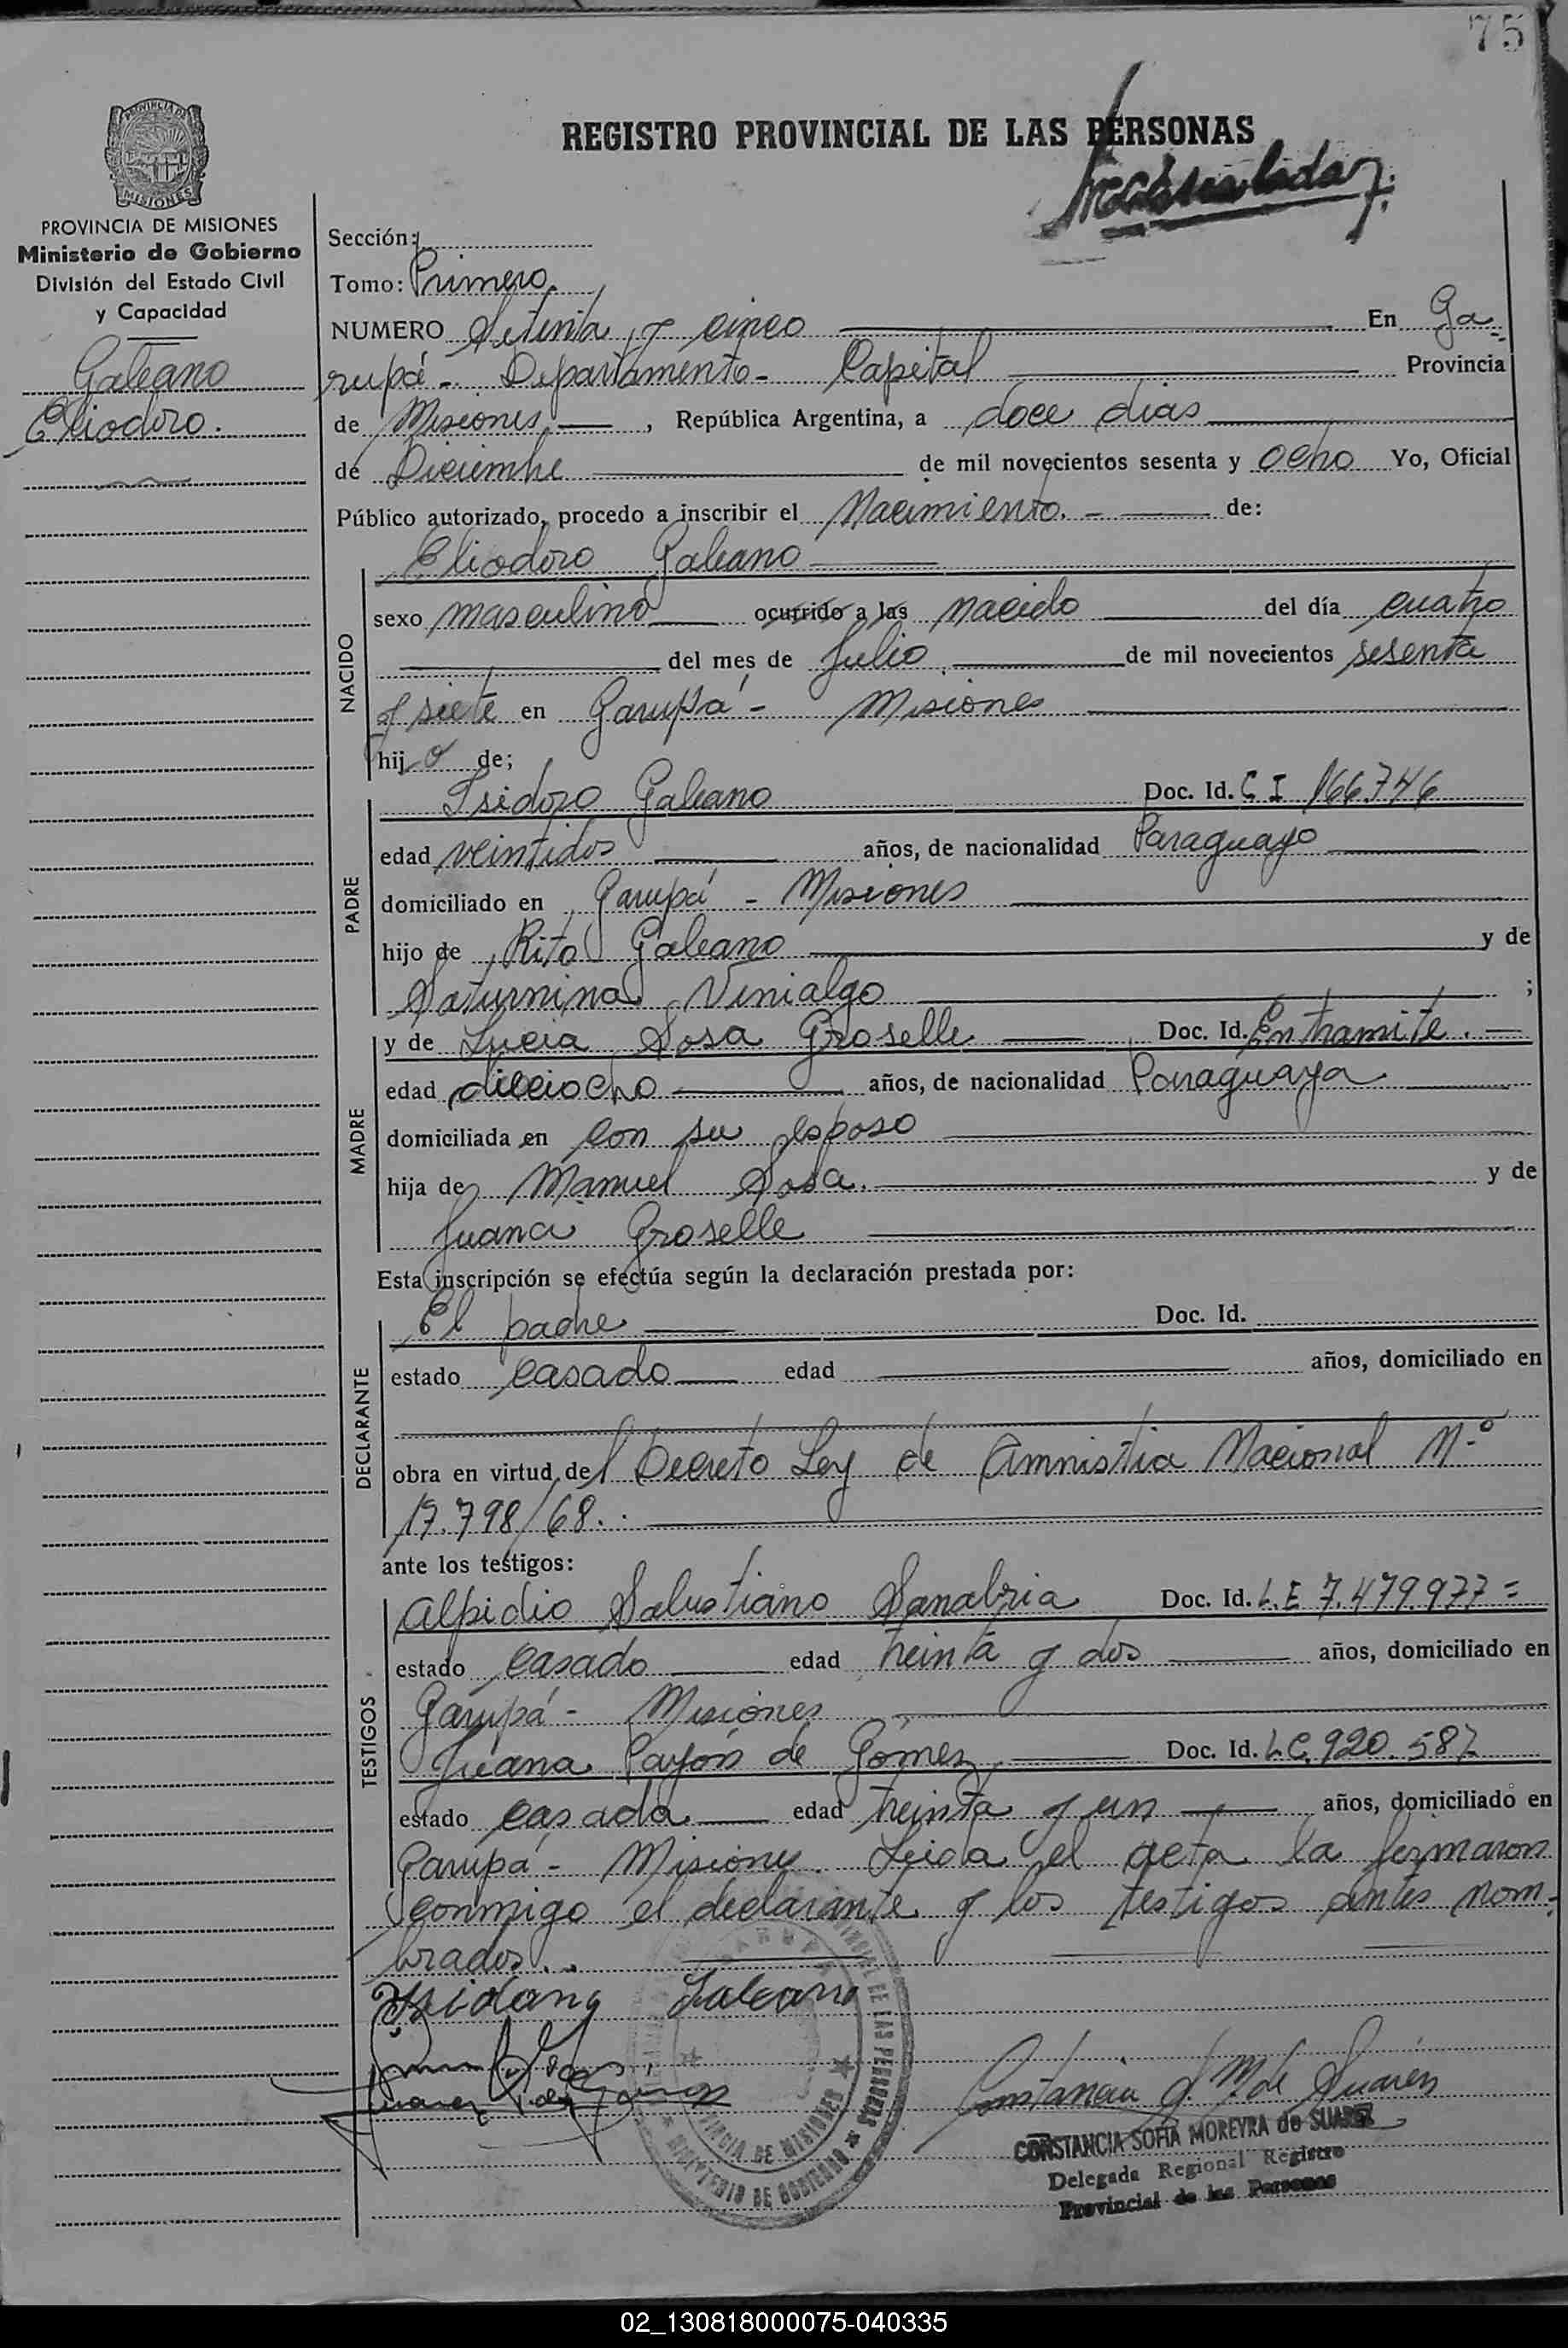 75
PROVINCIA DE
MISIONES
REGISTRO PROVINCIAL DE LAS PERSONAS
PROVINCIA DE MISIONES
Ministerio de Gobierno
División del Estado Civil
y Capacidad
Galeano
Eliodoro.
Sección:
Tomo: Primero
NUMERO Setenta y cinco En Ga-
rupá - Departamento - Capital Provincia
de Misiones, República Argentina, a doce dias
de Diciembre de mil novecientos sesenta y ocho Yo, Oficial
Público autorizado, procedo a inscribir el Nacimiento. - de:
Eliodoro Galeano
NACIDO
sexo masculino ocurrido a las nacido del día cuatro
del mes de Julio de mil novecientos sesenta
y siete en Garupá - Misiones
hijo de;
PADRE
Isidoro Galeano Doc. Id. C I 166.746
edad veintidos años, de nacionalidad Paraguayo
domiciliado en Garupá - Misiones
hijo de Rito Galeano y de
Saturnina Vinialgo ;
MADRE
y de Lucia Sosa Groselle Doc. Id. En tramite.
edad dieciocho años, de nacionalidad Paraguaya
domiciliada en con su esposo
hija de Manuel Sosa. y de
Juana Groselle
Esta inscripción se efectúa según la declaración prestada por:
DECLARANTE
El padre Doc. Id.
estado casado edad años, domiciliado en
obra en virtud del Decreto Ley de Amnistia Nacional N.º
17.798/68.
ante los testigos:
TESTIGOS
Alpidio Salustiano Sanabria Doc. Id. L.E 7.479.977=
estado casado edad treinta y dos años, domiciliado en
Garupá - Misiones
Juana Payón de Gómez Doc. Id. L.C. 920.587
estado casada edad treinta y un años, domiciliado en
Garupá - Misiones. Leida el acta la firmaron
conmigo el declarante y los testigos antes nom-
brados.
Galeano
Constancia S. M. de Suárez
CONSTANCIA SOFIA MOREYRA de SUAREZ
Delegada Regional Registro
Provincial de las Personas
DE LAS PERSONAS
PROVINCIA DE MISIONES
MINISTERIO DE GOBIERNO
02_130818000075-040335